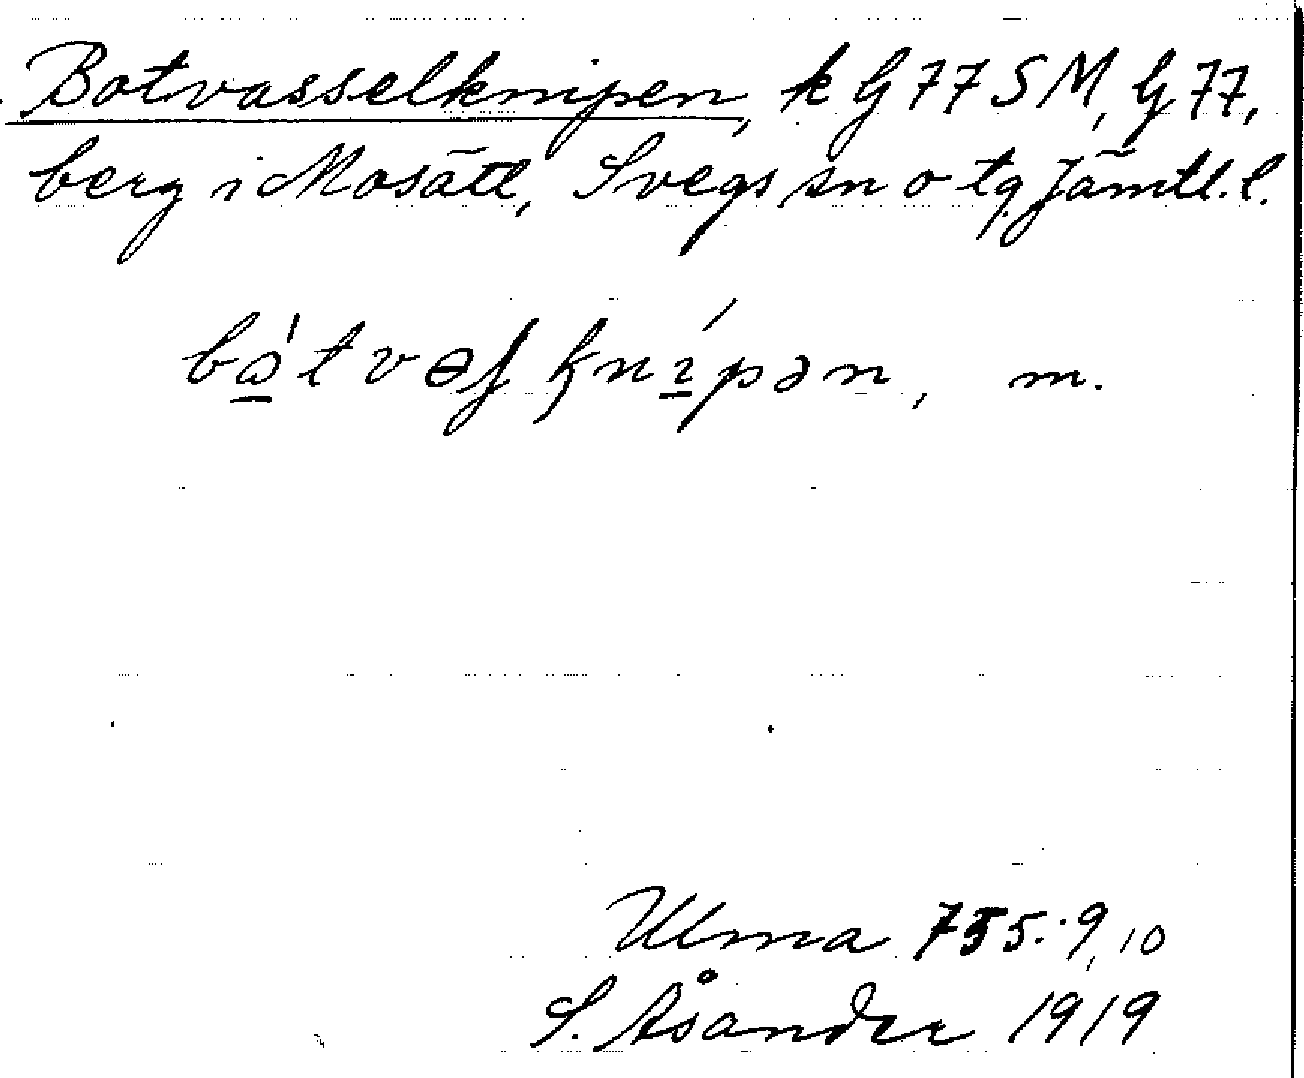 Botvasselknipen, k G 77 SM, G 77,
berg i Mosätt, Svegs sn o tg Jämtl. l.
bǻ̱tvɵʃ kní̱pən, m.
Ulma 755:9,10
S. Åsander 1919